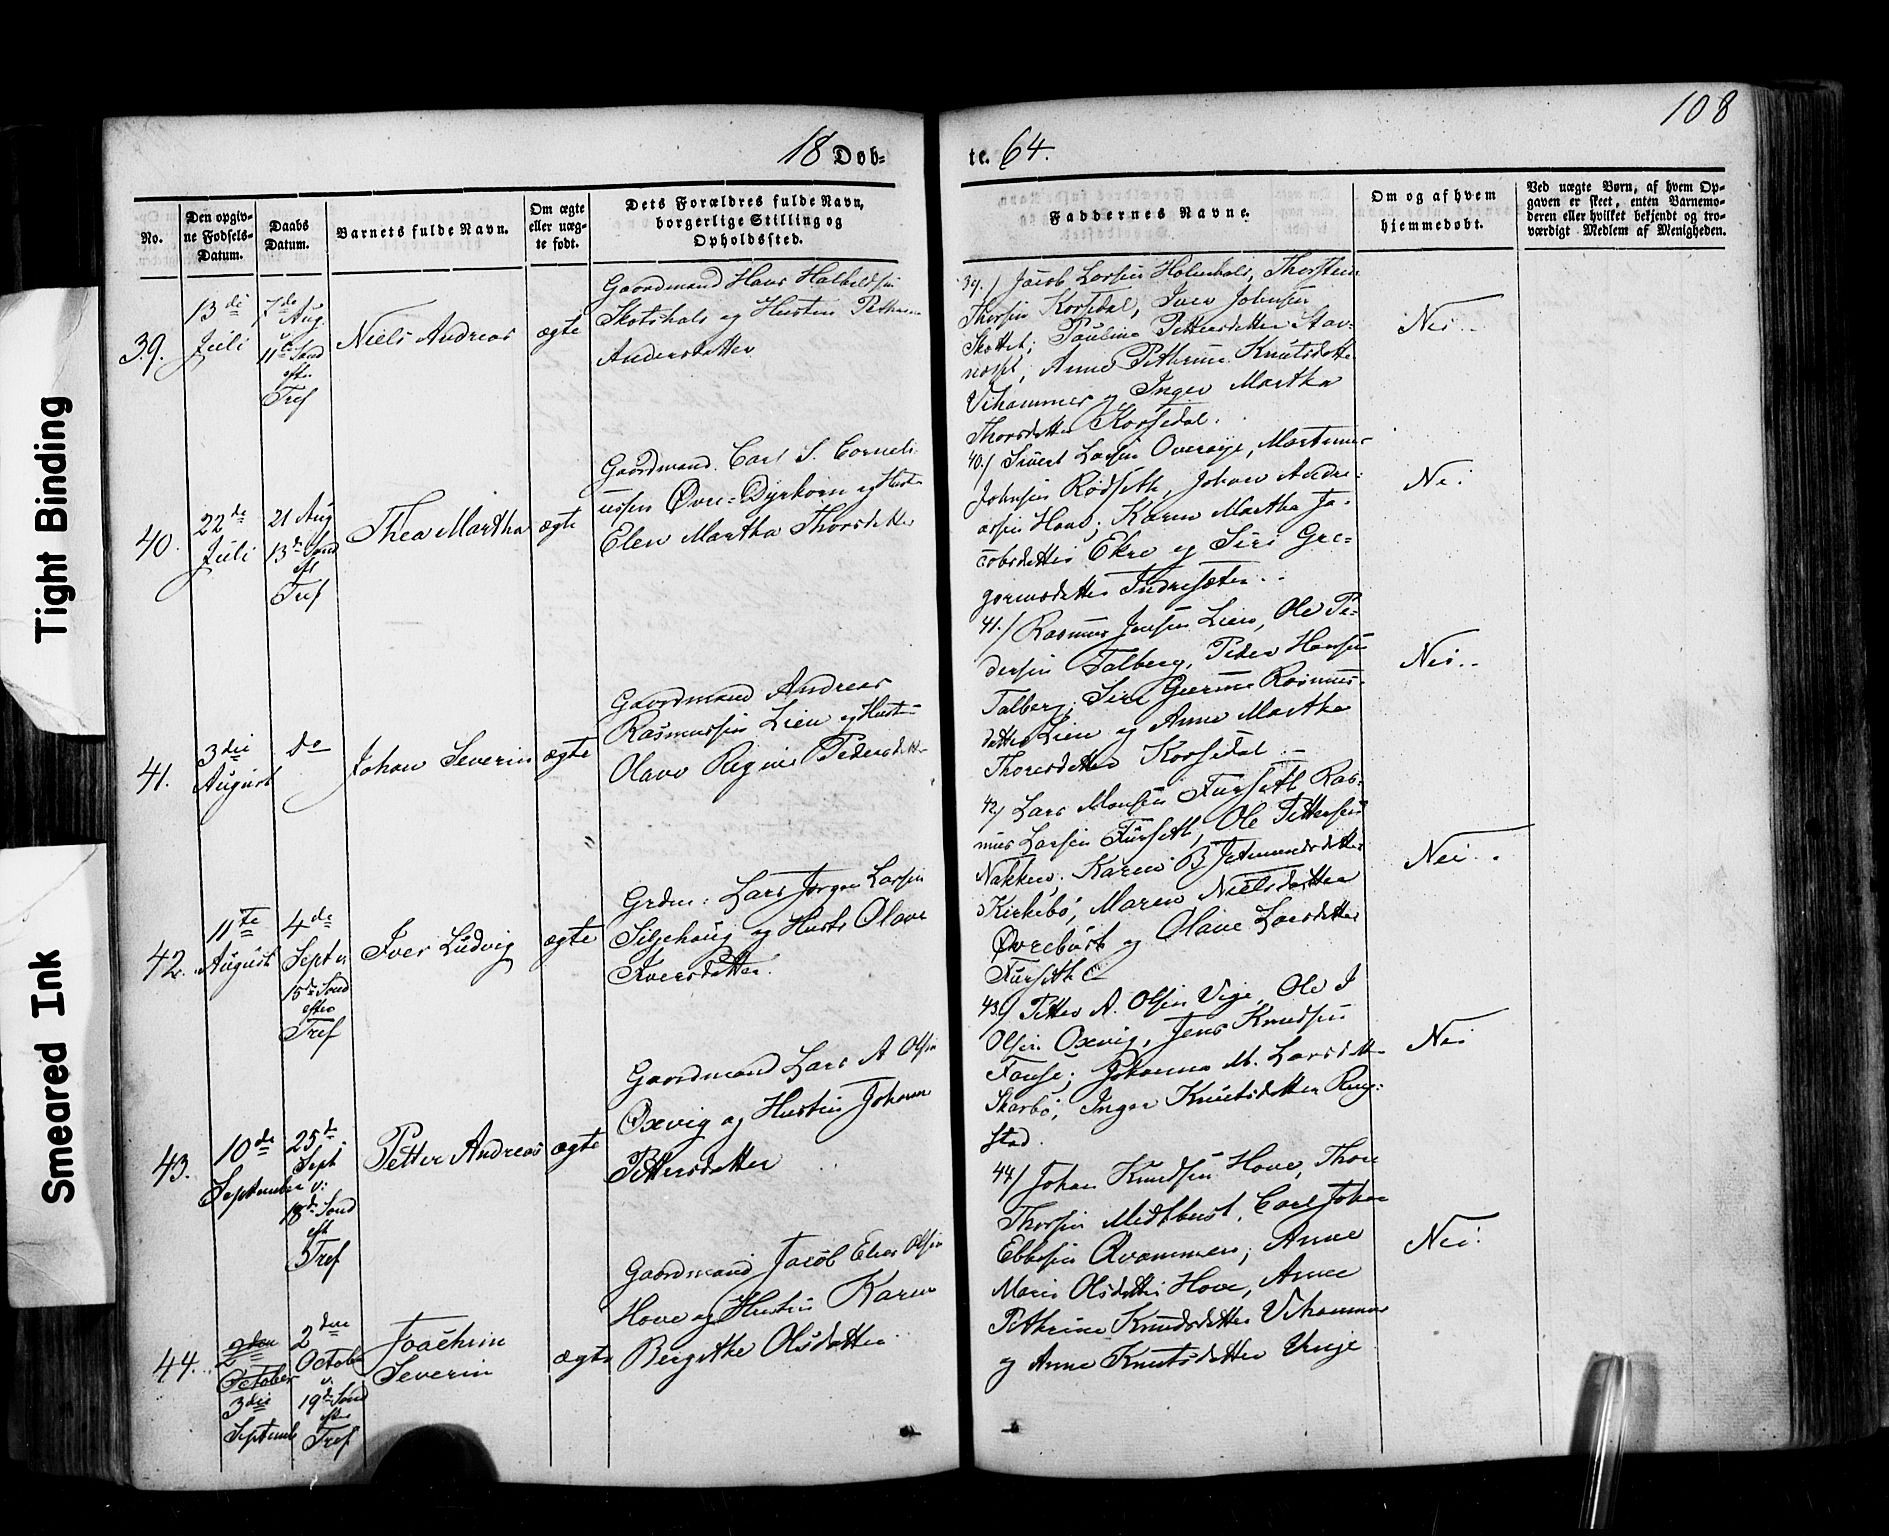 108
18 Døb-
te. 64.
No.
Den opgiv-
ne Fødsels-
Datum.
Daabs
Datum.
Barnets fulde Navn.
Om ægte
eller uæg-
te født.
Dets Forældres fulde Navn,
borgerlige Stilling og
Opholdssted.
Faddernes Navne.
Om og af hvem
hjemmedøbt.
Ved uægte Børn, af hvem Op-
gaven er skeet, enten Barnemo-
deren eller hvilket bekjendt og tro-
værdigt Medlem af Menigheden.
39.
13de
Juli
7de Aug.
v.
11te Sønd
efter
Tref
Niels Andreas
ægte
Gaardmand Hans
Skotshals og Hustru
Andersdatter
39./ Jacob Larsen Holmhols, Thorsten
Thorsen Korsedal, Iver Johnsen
Skottet; Pauline Pettersdatter Stav-
næset, Anne Pethrine Knutsdatter
Vihammer og Inger Martha
Thorsdatter Korsedal.
Nei.
40.
22de
Juli
21 Aug
13de Sønd
eft
Tref
Thea Martha
ægte
Gaardmand. Carl S. Corneli-
ussen Øvre-Dyrkorn og Hust
Elen Martha Thorsdatter
40./ Sivert Larsen Overøye,
Johnsen Rødseth, Johan Andre-
assen Hove; Karen Martha Ja-
cobsdatter Ekre og Siri Gre-
goriusdatter Indresæter.
Nei
41.
3die
August
do
Johan Severin
ægte
Gaardmand Andreas
Rasmussen Lien og Hustru
Olave Regine Pedersdatter
41./ Rasmus Jensen Lien, Ole Pe-
dersen Talberg, Peder Hansen
Talberg; Siri Rasmus-
datter Lien og Anne Martha
Thoresdatter Korsedal
Nei.
42.
11te
August
4de
Septr
15de Sønd
efter
Tref
Iver Ludvig
ægte
Grdm: Lars Jørgen Larsen
Siljehaug og Hustr Olave
Iversdatter.
42./ Lars Monsen Furseth Ras-
mus Larsen Furseth, Ole Pettersen
Nakken. Karen B
Kirkebø, Maren Nielsdatter
Øvrebust og Olave Larsdatter
Furseth
Nei.
43.
10de
September
25de
Sept
v:
18de Sønd
eft
Tref
Petter Andreas
ægte
Gaardmand Lars A Olsen
Oxvig og Hustru Johanne
Pettersdatter
43/ Petter A. Olsen Vige, Ole I
Olsen Oxvig, Jens Knudsen
Fause; Johanna M. Larsdatt
Skarbø, Inger Knutsdatter Ring-
stad.
Nei
44.
2den
October
3die
Septemb
2den
October
v.
19de Sønd
efter
Tref
Joachim
Severin
ægte
Gaardmand Jacob Elias Olsen
Hove og Hustru Karen
Bergithe Olsdatter
44/ Johan Knudsen Hove, Thore
Thorsen Midtbust, Carl Johan
Ebbesen Qvammen; Anne
Marie Olsdatter Hove, Anne
Pethrine Knudsdatter Vihammer
og Anne Knutsdatter
Nei.
Tight Binding
Smeared Ink